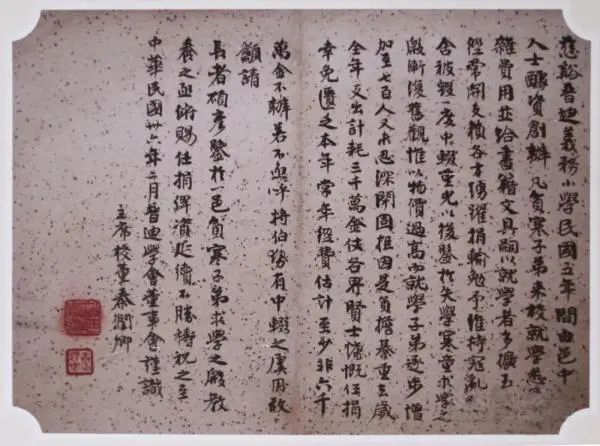 慈谿普迪義務小學民國五年間由邑中
人士醵資創辦凡貧寒子弟來校就學悉
雜費用並給書籍文具嗣以就學者多擴至
經常開支賴各方踴躍捐輸勉予維持寇亂
舍被燬一度中輟重光以後鑒於失學童求學之
殷漸復舊觀惟以物價過高而就學子弟逐步增
加至七百人又未忍深閉固拒因是負擔綦重去歲
全年支出計耗三千萬金各界賢士慷慨任捐
幸免匱乏本年常年經費估計至少非六千
萬金不辦若不亟呼將伯勢有中輟之虞用敢
籲請
長者碩彥鑒於一邑貧寒子弟求學之殷教
養之亟俯賜任捐俾資延續不勝禱祝之至
中華民國卅六年二月普迪學會董事會謹識
主席校董秦潤卿